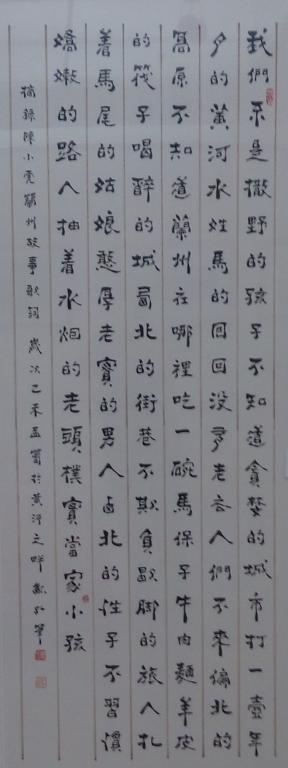 我們不是撒野的孩子不知道貪婪的城市打一壺年
夕的黃河水姓馬的回回没多老去人們不來偏北的
高原不知道蘭州在哪裡吃一碗馬保子牛肉麵羊皮
的筏子喝醉的城北的街巷不欺負歇脚的旅人扎
着馬尾的姑娘憨厚老實的男人卤北的性子不習慣
嬌嫩的路人抽着水烟的老頭樸實當家小孩
摘錄陳小虎蘭州故事歌詞 歲次乙未孟於黃河之畔